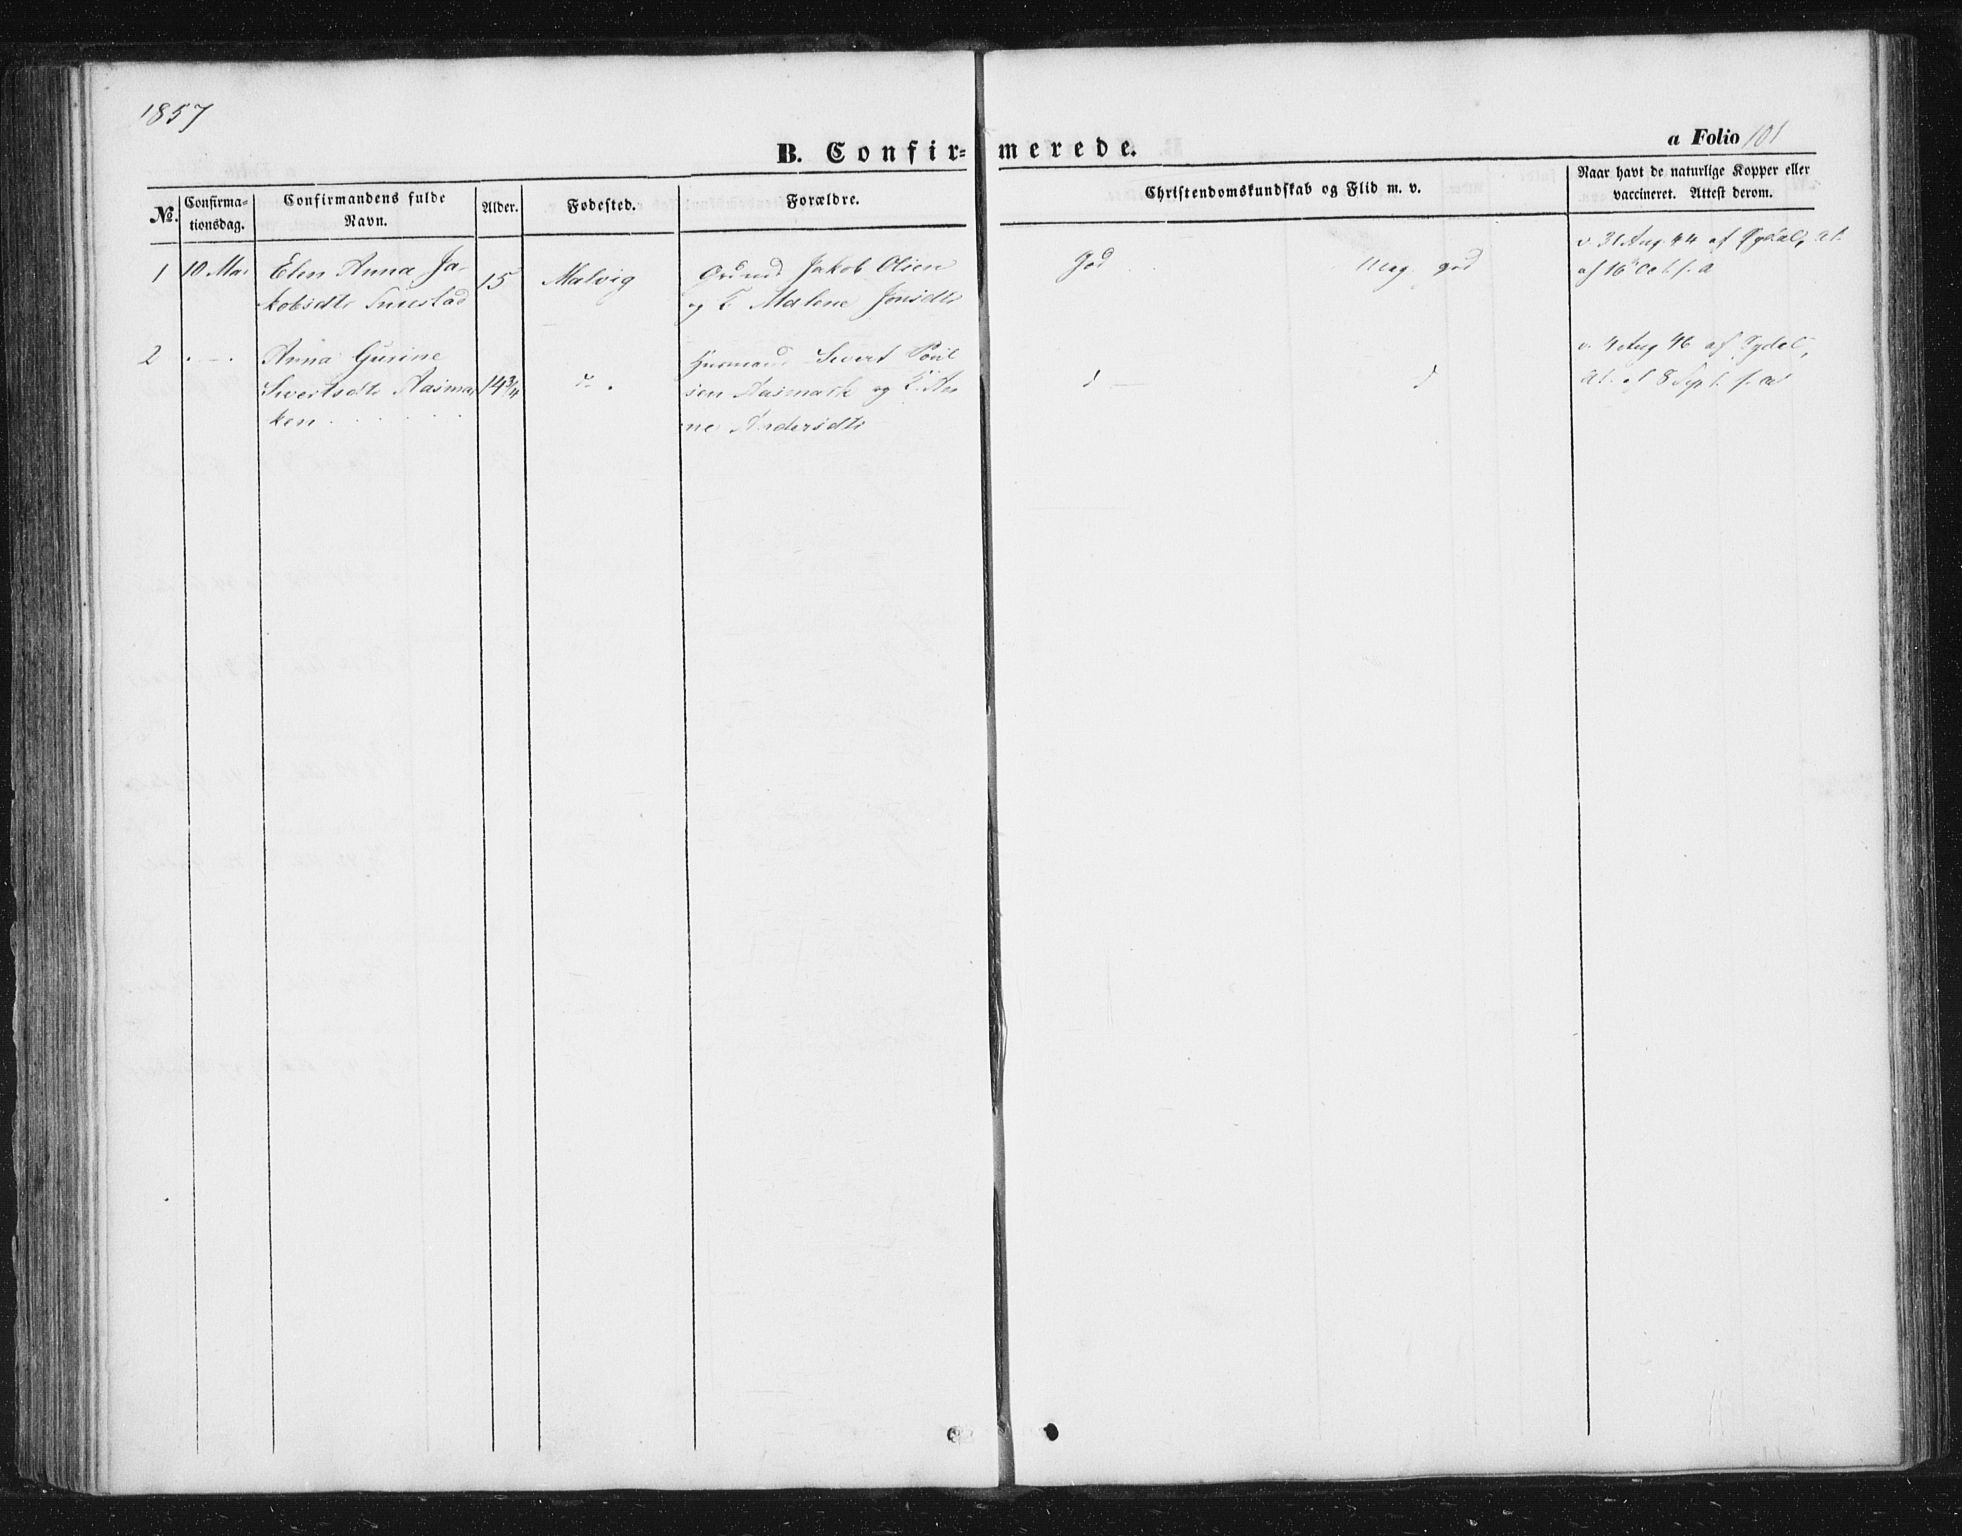 1857
B. Confir= merede.
a Folio 101
No.
Confirma-
tionsdag.
Confirmandens fulde
Navn.
Alder.
Fødested.
Forældre.
Christendomskundskab og Flid m. v.
Naar havt de naturlige Kopper eller
vaccineret. Attest derom.
1 10 Mai Elen Anna Ja-
kobsdtr
15 Malvig
Jakob Olsen
og K. Malene Jonsdtr
God
Meg. god
v. 31 Aug. 44 af Tydal, At.
af 16 Oct. s. A
2
Anna Gurine
Sivertsdtr Aasmar
ken
14 3/4
do
Husmand Sivert Poul
sen Aasmark og K. An
ne Andersdtr
v. 4 Aug 46 af Tydal,
At. af 8 Sept. s. A